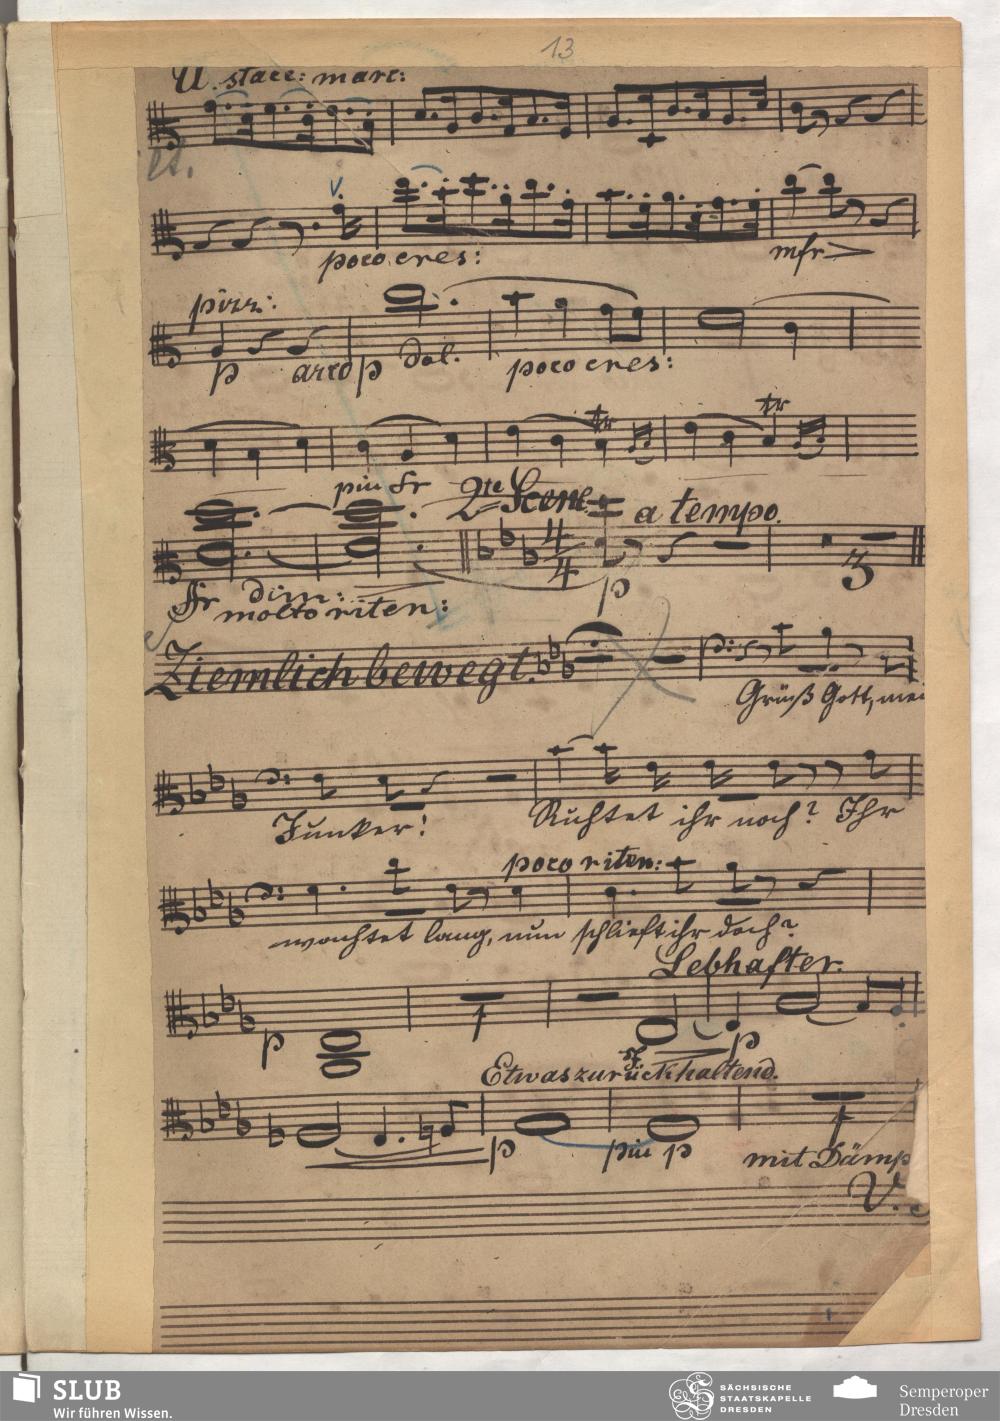 13
U. stacc: marc:
poco cres:
mfr
pizz:
p arco p Dol. poco cres:
tr tr
piu fr 2te Scene a tempo.
4
4
3
fr dim: p
molto riten:
Ziemlich bewegt.
Grüß Gott, mei
Junker!
Ruhtet ihr noch? Ihr
poco riten:
wachtet lang, nun schlieft ihr doch?
Lebhafter.
p p
Etwas zurückhaltend.
p piu p mit Dämp
V.
SLUB
Wir führen Wissen.
SÄCHSISCHE
STAATSKAPELLE
DRESDEN
Semperoper
Dresden